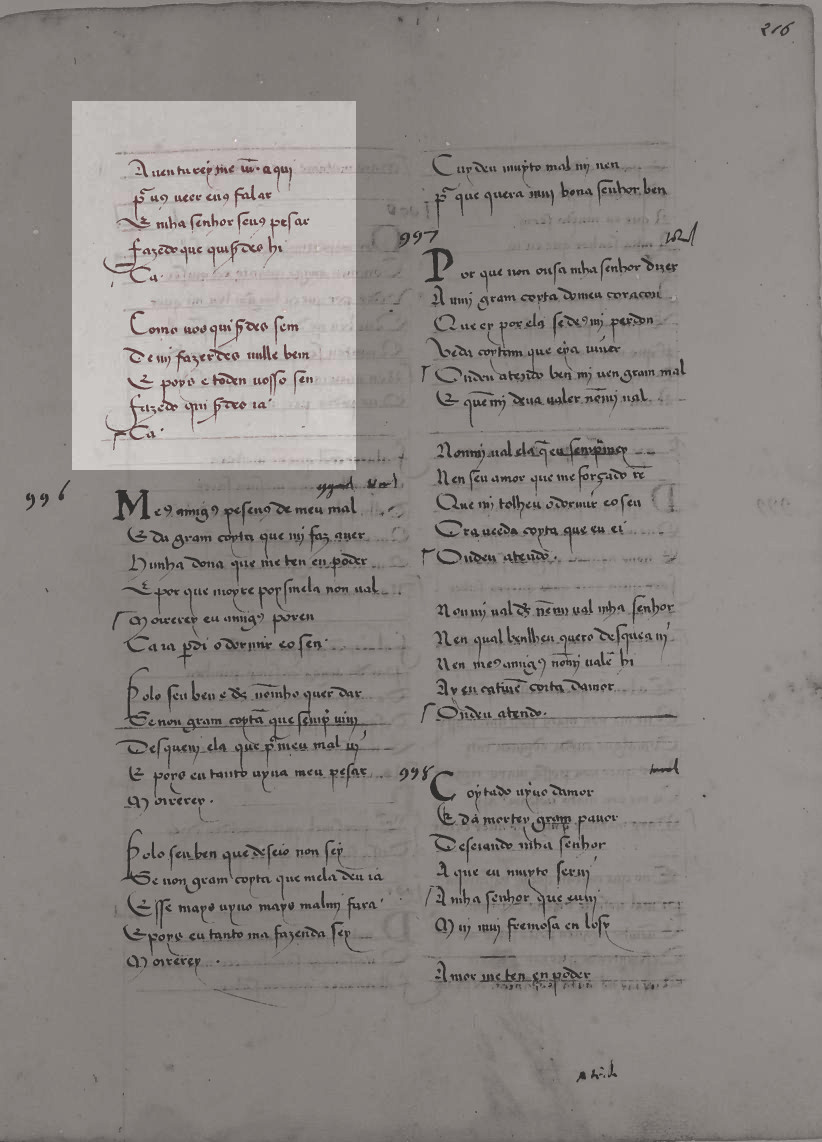 216
Auentureyme vir aqui
pra u9 ueer eu9 falar
E mha senhor seu9 pesar
fazedo que quisdes hi
Ca
Como uos quisdes sem
De mi fazerdes nulle bem
E poys e toden uosso sen
fazedo qui sdes ia
Ca
996
Me9 amig9 pesen9 de meu mal
E da gram coyta que mi faz auer
Hunha dona que me ten en poder
E por que moyre poys mela non ual
Moirerey eu amig9 poren
Ca ia pdi o dormir e o sen
Polo seu ben e ds no mho quer dar
Se non gram coyta que semp ui
Desqueni ela que pra meu mal ui
E poys eu tanto uyua meu pesar
Moirerey
Polo seu ben que deseio non sey
Se non gram coyta que mela deu ia
Esse mays uyuo mays malmi fara
Epoys eu tanto ma fazenda sey
Moirerey
Cuydeu muyto mal mi uen
pra que quera mui bona senhor ben
997
Por que non ousa mha senhor dizer
A mi gram coyta do meu coraçon
Que ey por ela se de9 mi perdon
Veda coytam que eya uiuer
Ondeu atendo ben mi uen gram mal
E que mi deua ualer nemi ual
Nonmi ual ela que eu
Nen seu amor que me forçado te
Que mi tolheu o dormir eo seu
Ora ueeda coyta que eu ei
Ondeu atendo
Nonmi ual ds nemi ual mha senhor
Nen qual ben lheu quero desquea ui
Nen me9 amig9 nomi uale hi
Ay en catiue coita damor
Ondeu atendo
998
Coytado uyuo damor
E da mortey gram pauor
Deseiando mha senhor
A que eu muyto serui
A mha senhor que eu ui
Mui mui fremosa en
Amor me ten en poder